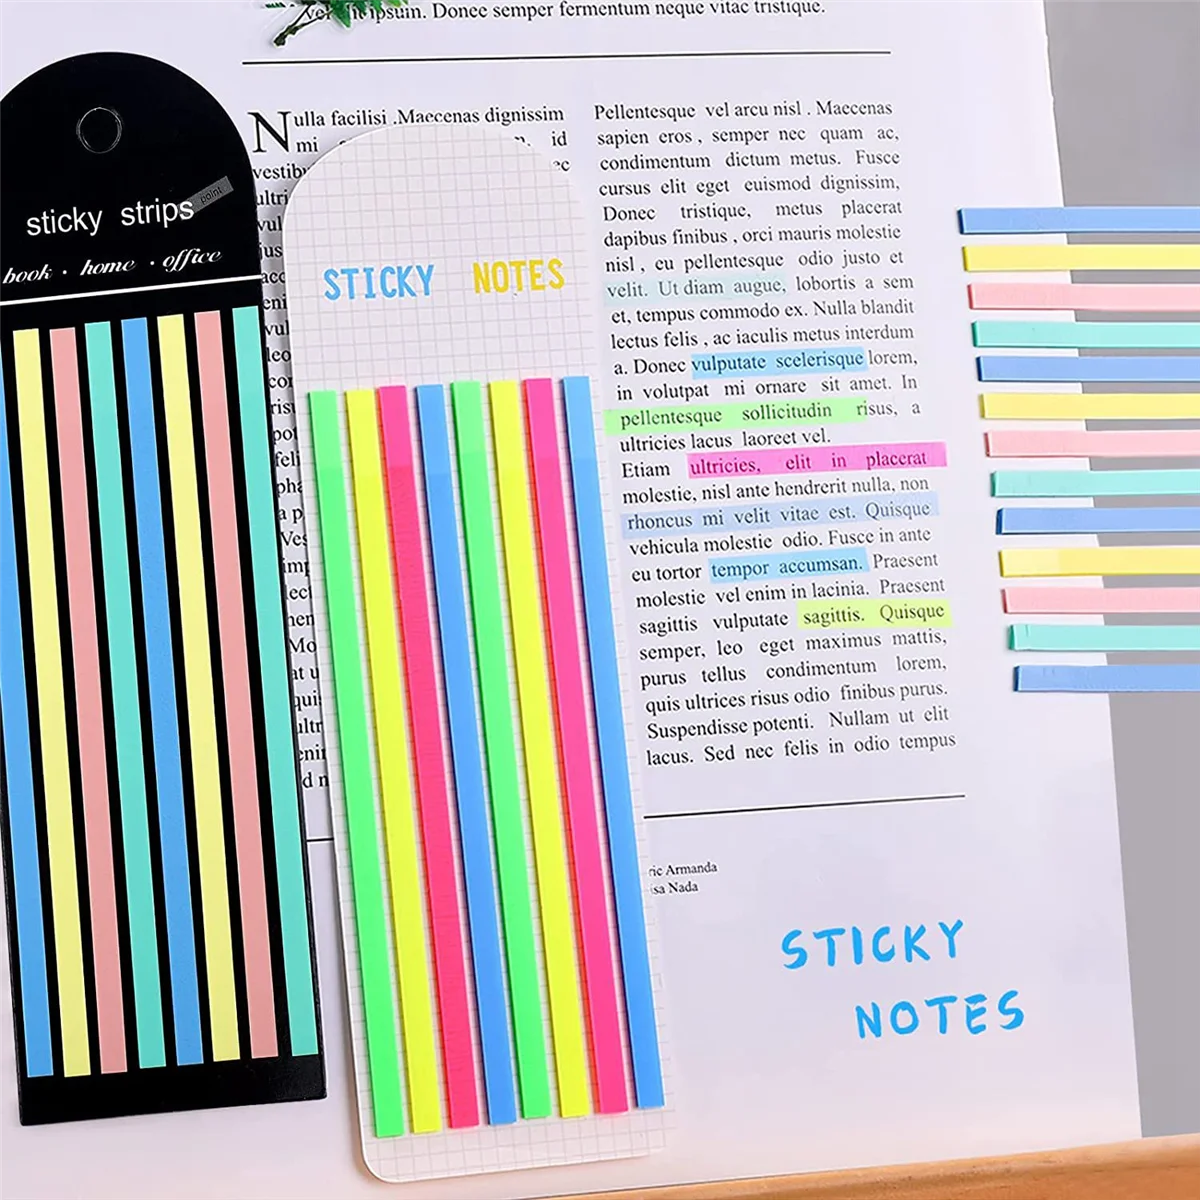 ipsum. Donec semper fermentum neque vitae tristique.
sticky strips
point
book · home · office
STICKY NOTES
Nulla facilisi .Maecenas dignissim
mi
id
Pellentesque vel arcu nisl . Maecenas
sapien eros , semper nec quam ac,
condimentum dictum metus. Fusce
cursus elit eget euismod dignissim,
Donec tristique, metus placerat
dapibus finibus , orci mauris molestie
nisl , eu pellentesque odio justo et
velit. Ut diam augue, lobortis a sem
et, tempus commodo ex. Nulla blandit
lectus felis , ac iaculis metus interdum
a. Donec vulputate scelerisque lorem,
in volutpat mi ornare sit amet. In
pellentesque sollicitudin risus, a
ultricies lacus laoreet vel.
Etiam ultricies, elit in placerat
molestie, nisl ante hendrerit nulla, non
rhoncus mi velit vitae est. Quisque
vehicula molestie odio. Fusce in ante
eu tortor tempor accumsan. Praesent
molestie vel enim in lacinia. Praesent
sagittis vulputate sagittis. Quisque
semper, leo eget maximus mattis,
purus tellus condimentum lorem,
quis ultrices risus odio finibus purus.
Suspendisse potenti. Nullam ut elit
lacus. Sed nec felis in odio tempus
Armanda
Nada
STICKY
NOTES